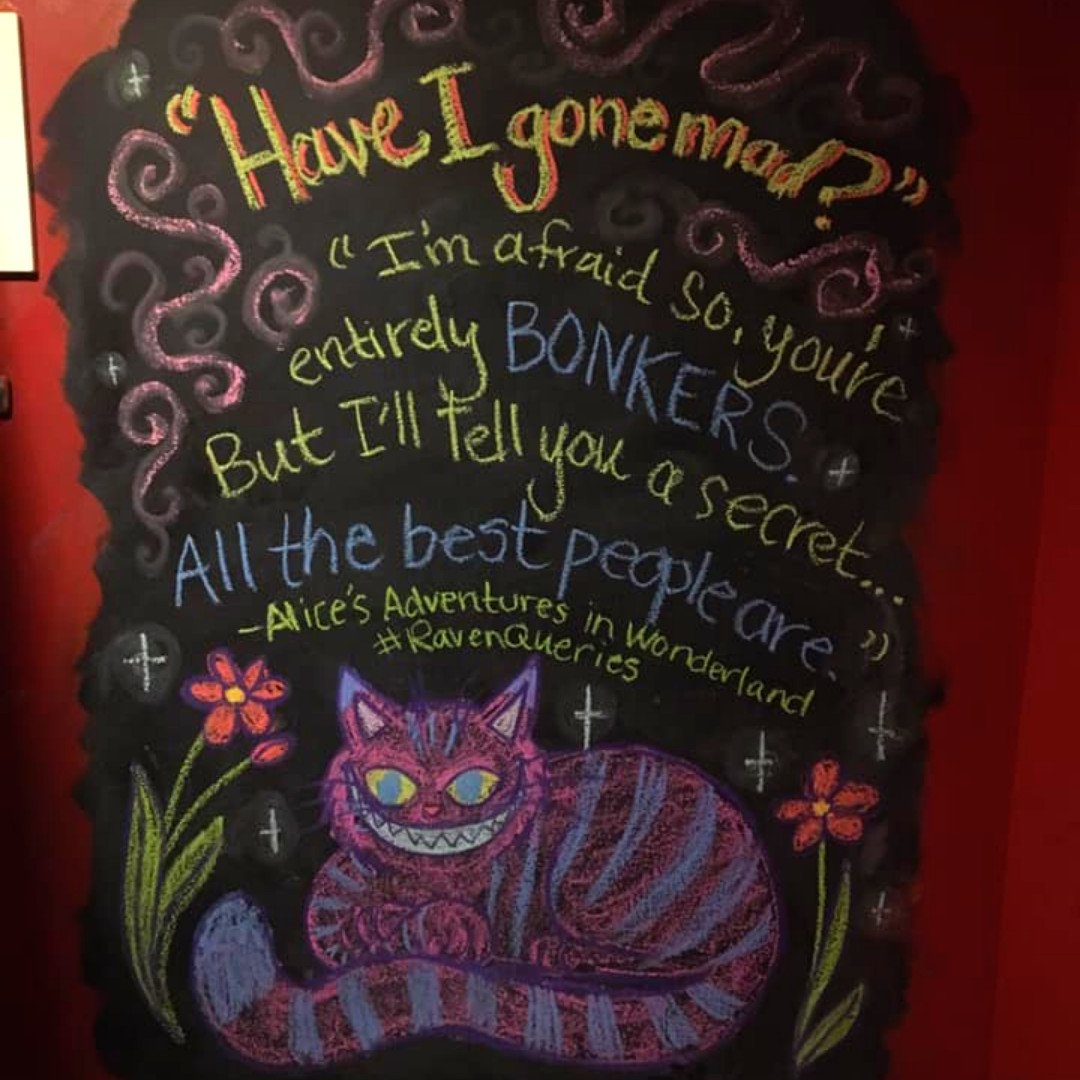 "Have I gone mad?"
"I'm afraid so, you're
entirely BONKERS.
But I'll tell you a secret...
All the best people are."
-Alice's Adventures in Wonderland
#RavenQueries